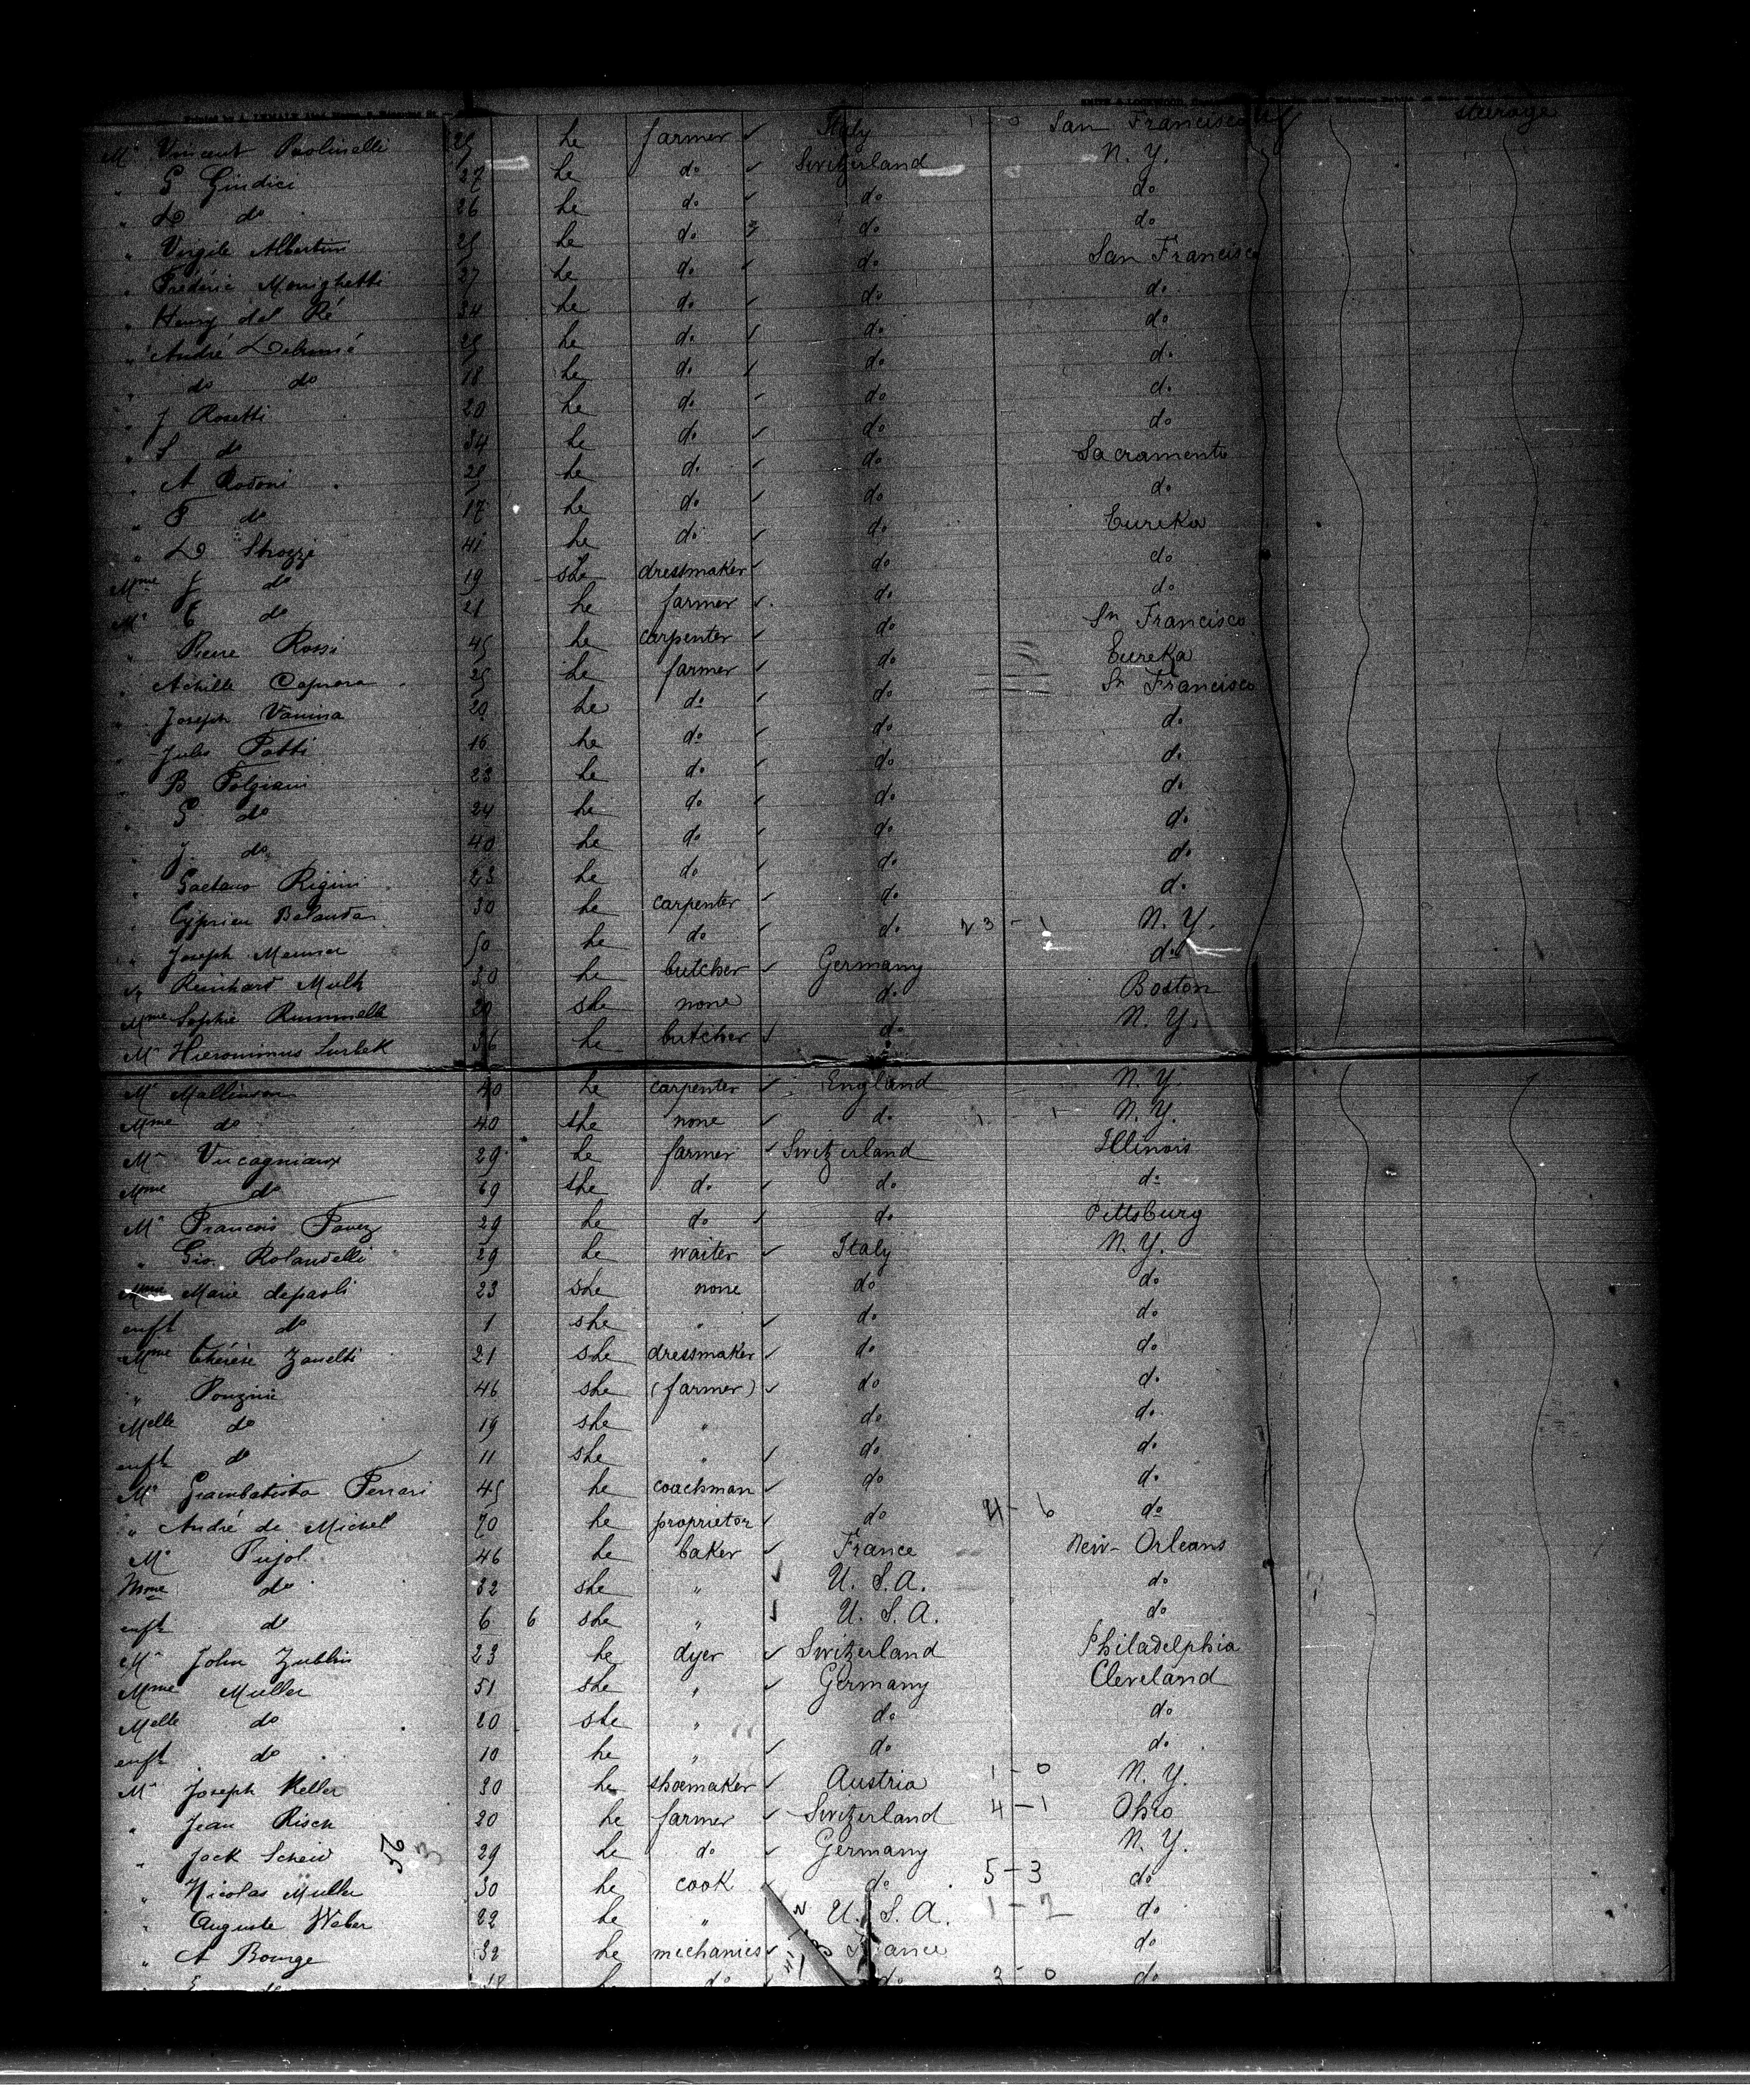 steerage
Mr Vincent Paolinelli 25 he farmer Italy San Francisco
" G Giudici 27 he do Switzerland N. Y.
" D do 26 he do do do
" Virgile Albertini 25 he do do do
" Frédéric Monighetti 27 he do do San Francisco
" Henry del Ré 34 he do do do
" André 25 he do do do
" do do 18 he do do do
" J Rosetti 20 he do do do
" S do 34 he do do do
" A Rodoni 28 he do do Sacramento
" F do 17 he do do do
" D Strozzi 41 he do do Eureka
Mme J do 19 she dressmaker do do
Mr E do 21 he farmer do do
" Pierre Rossi 45 he carpenter do Sn Francisco
" Achille Caprara 25 he farmer do Eureka
" Joseph Vanina 29 he do do Sn Francisco
" Jules Patti 16 he do do do
" B Folgiani 23 he do do do
" G do 24 he do do do
" J. do 40 he do do do
" Gaetano Rigini 23 he do do do
" Cyprien Balanda 30 he carpenter do do
" Joseph Meunier 50 he do do 23 - 1 N. Y.
" Reinhard Multz 30 he butcher Germany do
Mme Sophie Rummelle 20 she none do Boston
Mr Hieronimus Surbek 36 he butcher do N. Y.
Mr Mallinson 40 he carpenter England N. Y.
Mme do 40 she none do 1 - 1 N. Y.
Mr Vucagniaux 29 he farmer Switzerland Illinois
Mme do 69 she do do do
Mr Francois Favez 29 he do do Pittsburg
" Gio. Rolandelli 29 he waiter Italy N. Y.
Mme Marie depaoli 23 she none do do
enft do 1 she " do do
Mme Thérèse Zanetti 21 she dressmaker do do
" Ponzini 46 she (farmer) do do
Melle do 19 she " do do
enft do 11 she " do do
Mr Giambatista Ferrari 45 he coachman do do
" André de Michel 70 he proprietor do 4 - 6 do
Mr Pujol 46 he baker France New-Orleans
Mme do 32 she " U. S. A. do
enft do 6 6 she " U. S. A. do
Mr John Zublin 23 he dyer Switzerland Philadelphia
Mme Muller 51 she " Germany Cleveland
Melle do 20 she " do do
enft do 10 he " do do
Mr Joseph Keller 30 he shoemaker Austria 1 - 0 N. Y.
" Jean Risch 20 he farmer Switzerland 4 - 1 Ohio
" Jack Scheid 29 he do Germany N. Y.
" Nicolas Muller 30 he cook do 5 - 3 do
" Auguste Weber 22 he " U. S. A. 1 - 2 do
" A Bourge 32 he mechanics France do
do 18 he do do 3 - 0 do